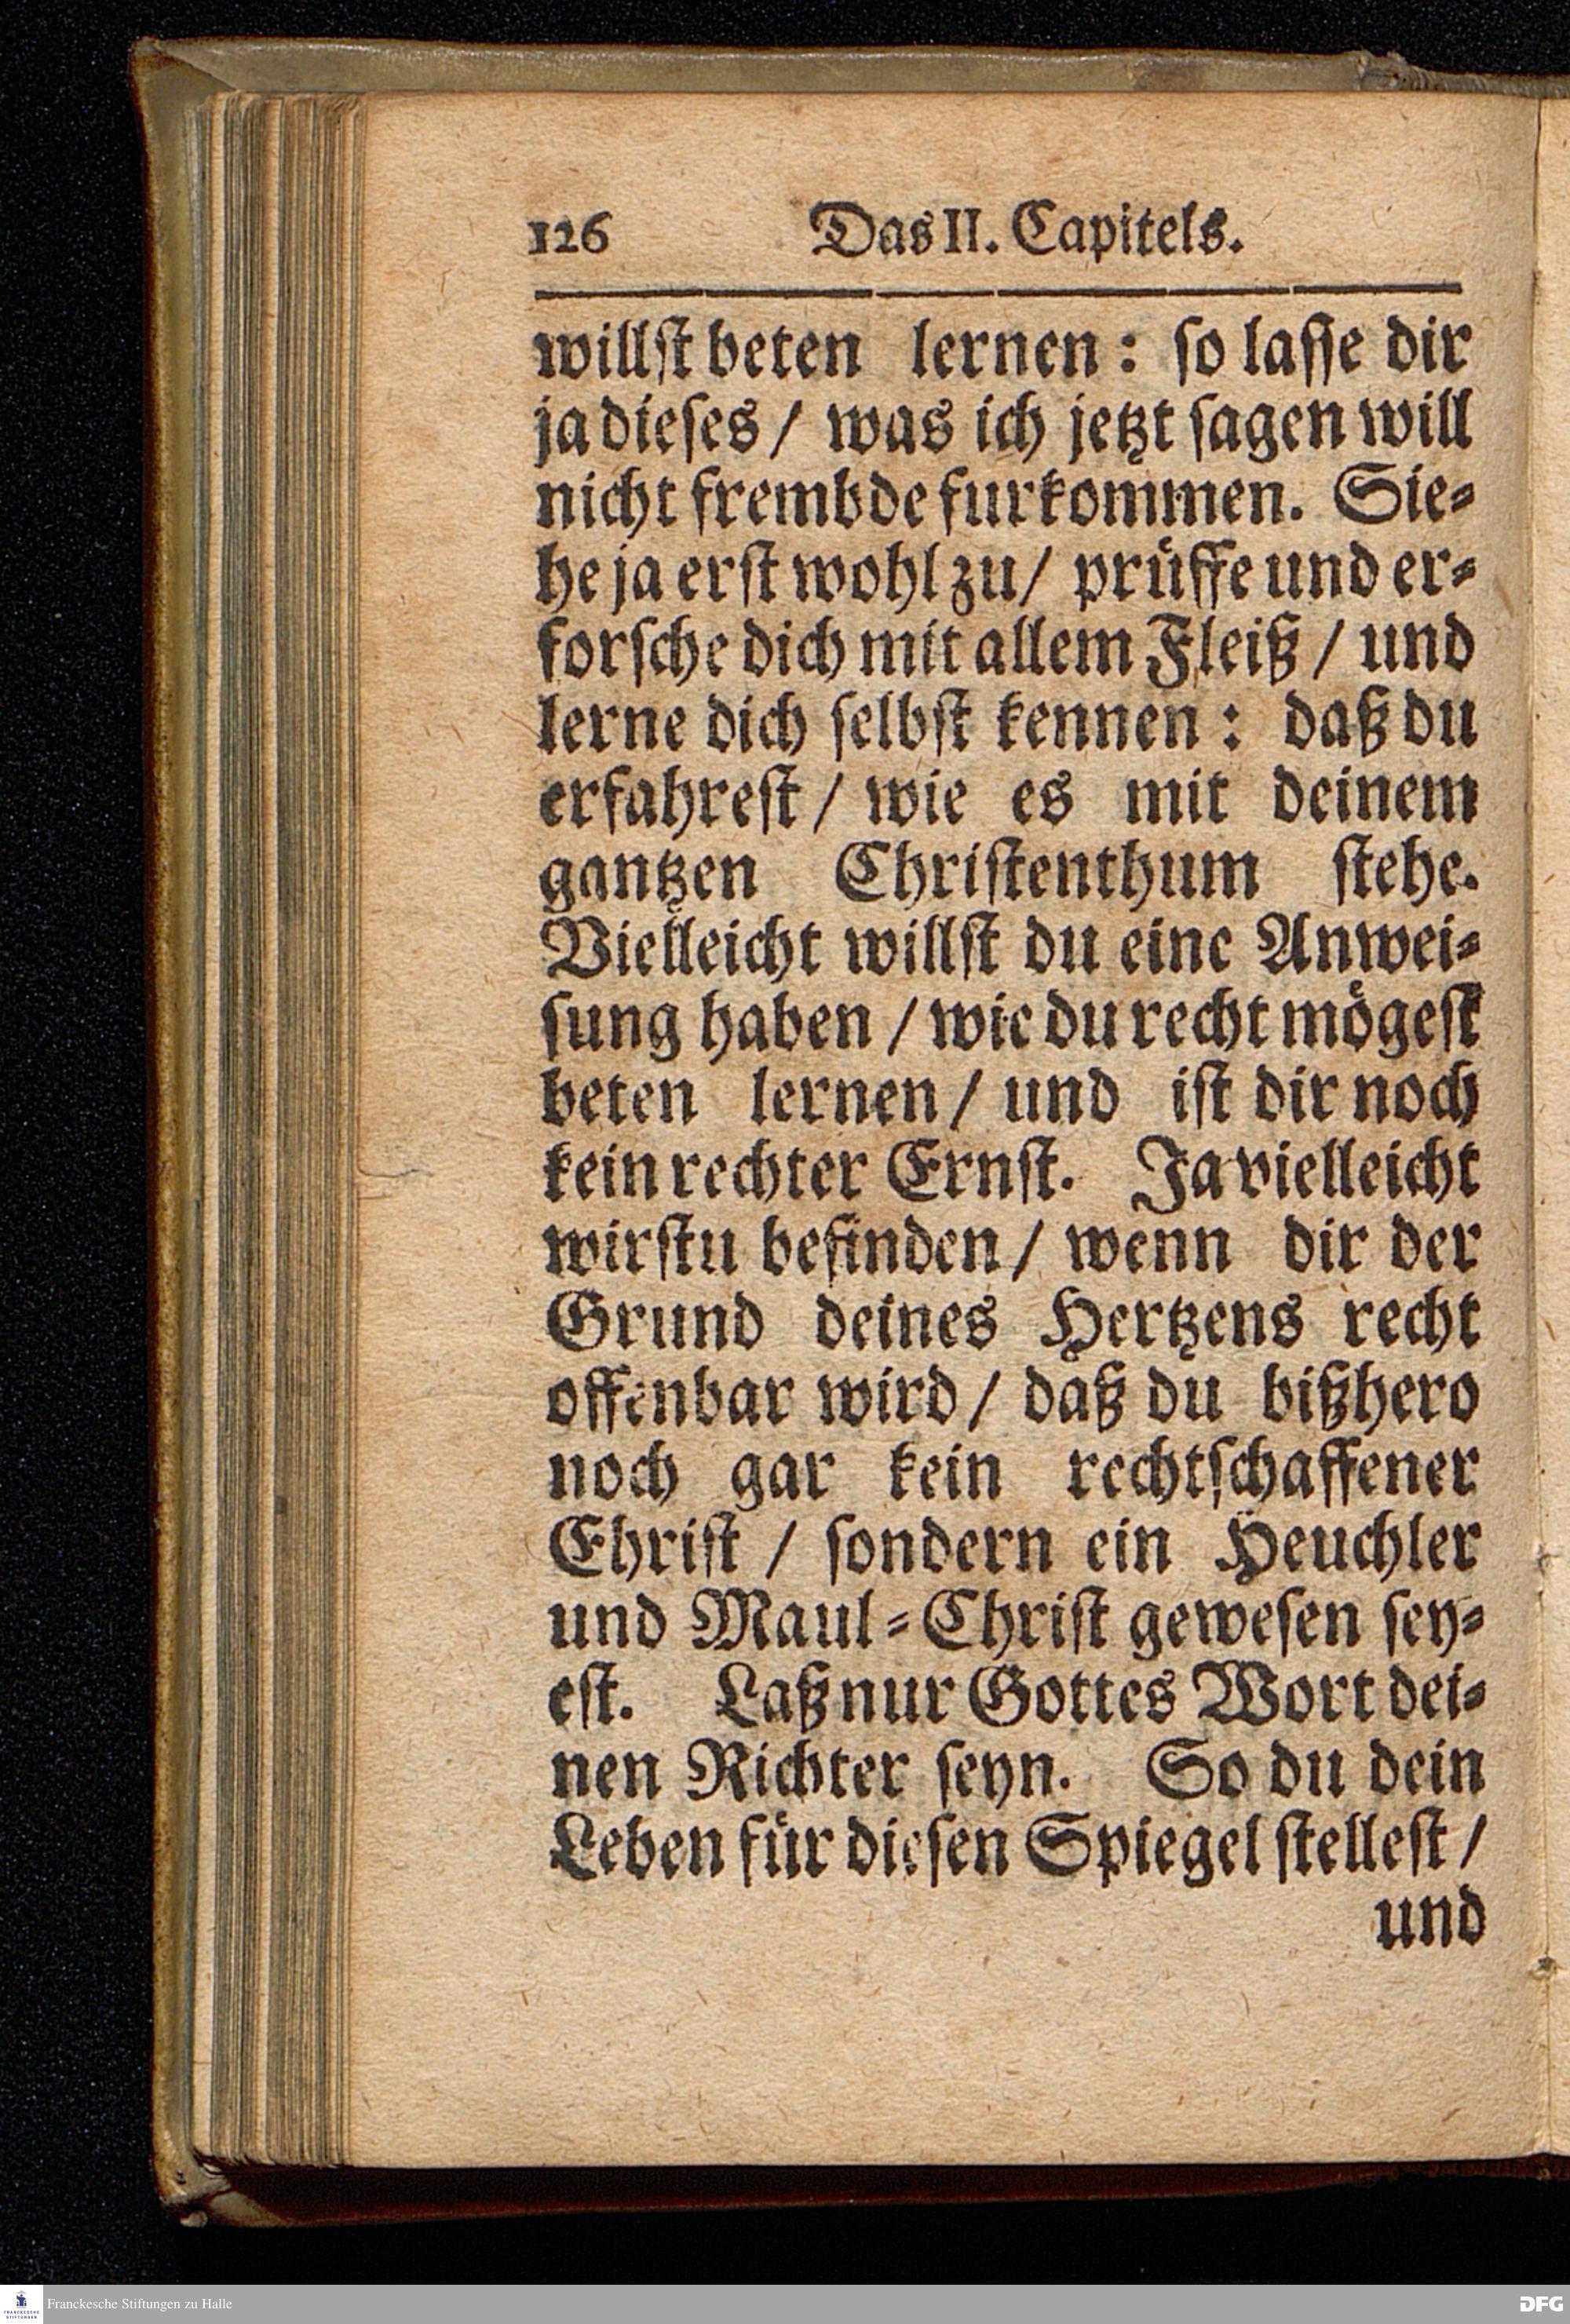 126 Das II. Capitels.
willst beten lernen: so lasse dir
ja dieses / was ich jetzt sagen will
nicht frembde furkommen. Sie-
he ja erst wohl zu / prüffe und er-
forsche dich mit allem Fleiß / und
lerne dich selbst kennen: daß du
erfahrest / wie es mit deinem
gantzen Christenthum stehe.
Vielleicht willst du eine Anwei-
sung haben / wie du recht mögest
beten lernen / und ist dir noch
kein rechter Ernst. Ja vielleicht
wirstu befinden / wenn dir der
Grund deines Hertzens recht
offenbar wird / daß du bißhero
noch gar kein rechtschaffener
Ehrist / sondern ein Heuchler
und Maul-Christ gewesen sey-
est. Laß nur Gottes Wort dei-
nen Richter seyn. So du dein
Leben für diesen Spiegel stellest /
und
Franckesche Stiftungen zu Halle
FRANCKESCHE
STIFTUNGEN
DFG